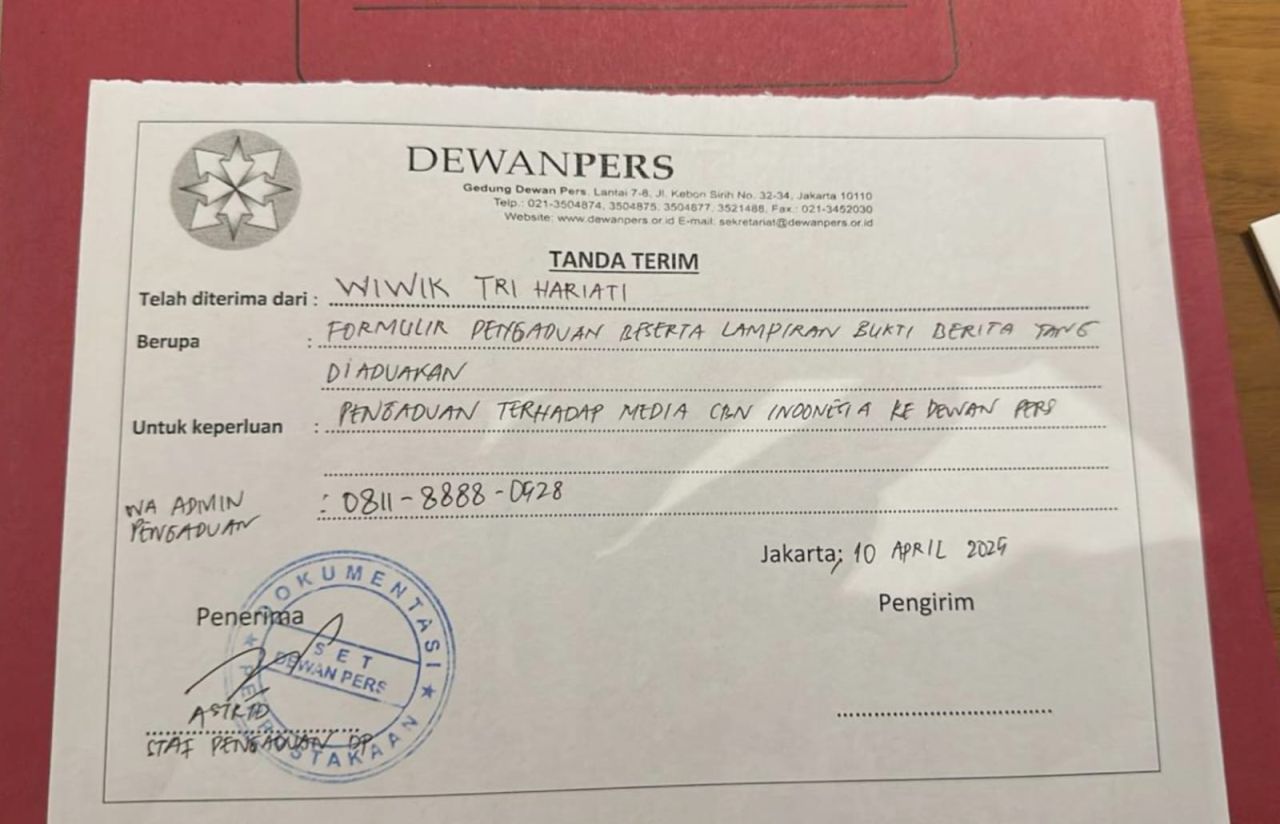 DEWANPERS
Gedung Dewan Pers. Lantai 7-8, Jl. Kebon Sirih No. 32-34, Jakarta 10110
Telp.: 021-3504874, 3504875, 3504877, 3521488, Fax.: 021-3452030
Website: www.dewanpers.or.id E-mail: sekretariat@dewanpers.or.id
TANDA TERIM
Telah diterima dari : WIWIK TRI HARIATI
Berupa : FORMULIR PENGADUAN BESERTA LAMPIRAN BUKTI BERITA YANG
DIADUAKAN
Untuk keperluan : PENGADUAN TERHADAP MEDIA INDONESIA KE DEWAN PERS
WA ADMIN PENGADUAN : 0811-8888-0928
Jakarta, 10 APRIL
Penerima
Pengirim
DOKUMENTASI
SET
DEWAN PERS
PERPUSTAKAAN
ASTRID
STAF PENGADUAN DP